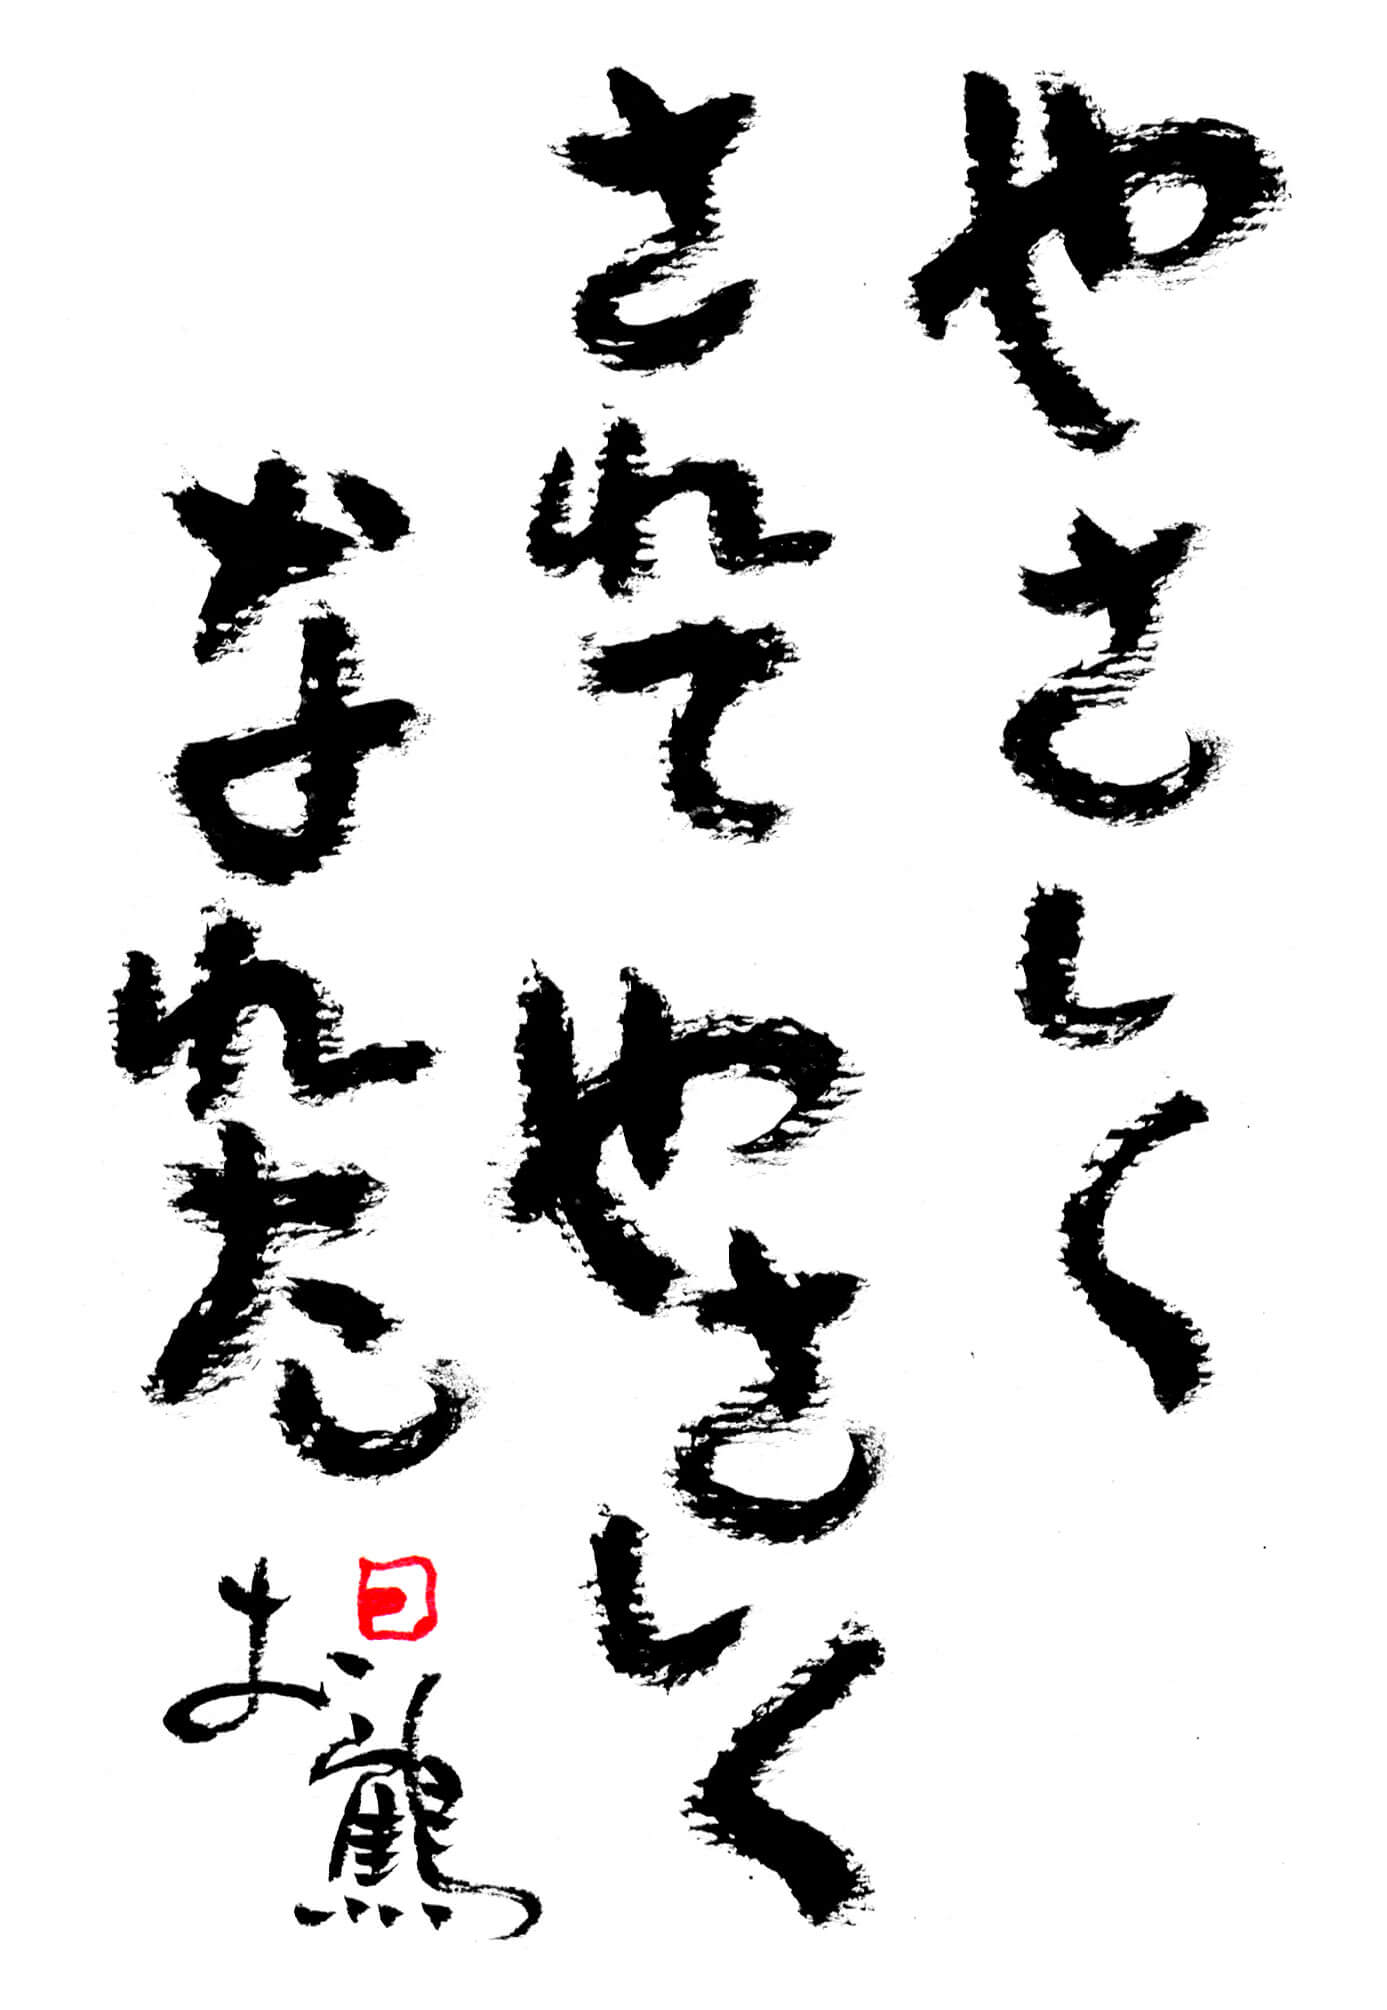 やさしく
されて やさしく
なれた
お熊